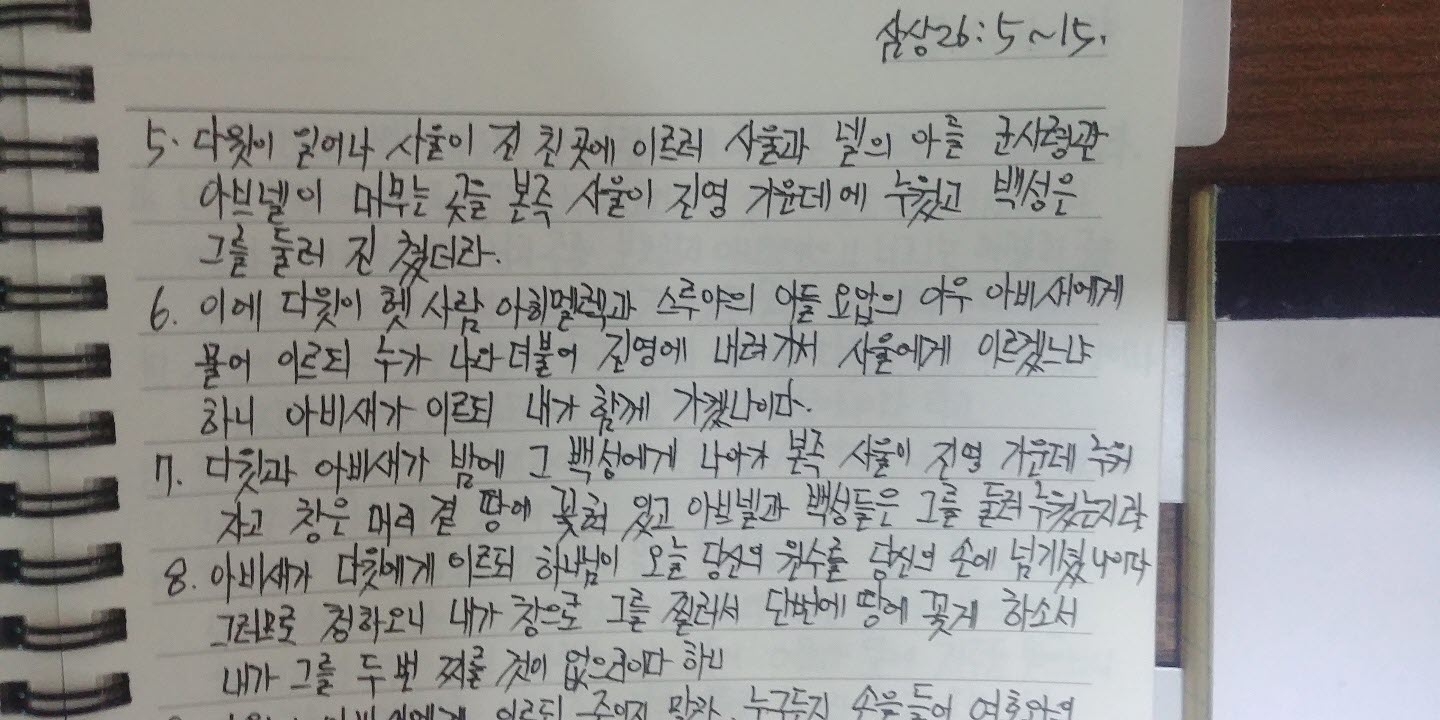 삼상26:5~15.
5. 다윗이 일어나 사울이 진 친 곳에 이르러 사울과 넬의 아들 군사령관
아브넬이 머무는 곳을 본즉 사울이 진영 가운데에 누웠고 백성은
그를 둘러 진 쳤더라.
6. 이에 다윗이 헷 사람 아히멜렉과 스루야의 아들 요압의 아우 아비새에게
물어 이르되 누가 나와 더불어 진영에 내려가서 사울에게 이르겠느냐
하니 아비새가 이르되 내가 함께 가겠나이다.
7. 다윗과 아비새가 밤에 그 백성에게 나아가 본즉 사울이 진영 가운데 누워
자고 창은 머리 곁 땅에 꽂혀 있고 아브넬과 백성들은 그를 둘러 누웠는지라
8. 아비새가 다윗에게 이르되 하나님이 오늘 당신의 원수를 당신의 손에 넘기셨나이다
그러므로 청하오니 내가 창으로 그를 찔러서 단번에 땅에 꽂게 하소서
내가 그를 두 번 찌를 것이 없으리이다 하니
이르되 죽이지 말라. 누구든지 손을 들어 여호와의